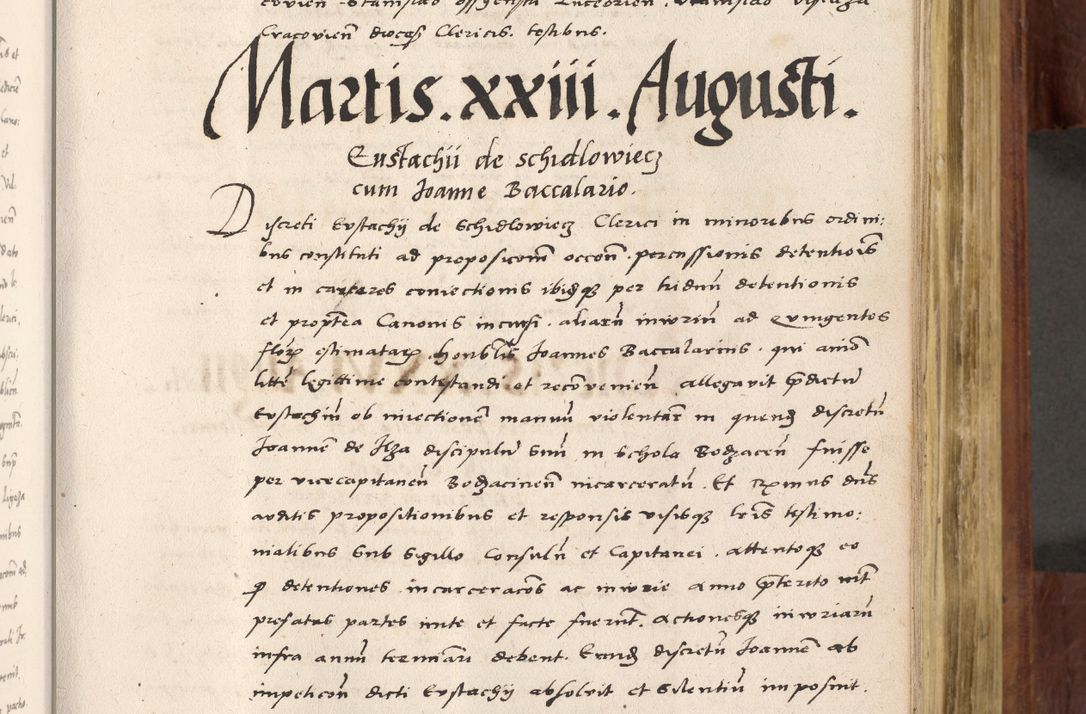 Cracovien̄ dioces̄ Clericis. testibus.
Martis. xxiii. Augusti.
Eustachii de schidlowiecz
cum Joanne Baccalario.
Discreti Eustachij de Schidlowiecz Clerici in minoribus ordini:
bus constituti ad proposicom̄ occōn. percussionis detentiōis
et in carceres coniectionis ibidqȝ per triduū detentionis
et proptea Canonis incursi. aliarū iniuriarū ad quingentos
florꝫ estimatarꝫ. honblis Joannes Baccalarius. qui animo
litē legittime contestandi et recōvenien̄ allegavit p̄dictū
Eustachiū ob iniectionē manuū violentar̄ in quendā discretū
Joannē de Ilza discipulū suū in schola Bodzacen̄ fuisse
per vicecapitaneū Bodzacinen̄ incarceratū. Et Rꝫmus dn̄s
auditis propositionibus et responsis visisqȝ lrīs testimo:
nialibus sub sigillo Consulū et Capitanei. attentoqȝ eo
ꝙ detentiones incarceracōs ac iniurie anno p̄terito int̄
prefatas partes mote et facte fuerint. actionesqȝ iniuriarū
infra annū terminari debent. Eundē discretū Joannē ab
impeticōn̄ dicti Eustachij absolvit et Silentiū imposuit.